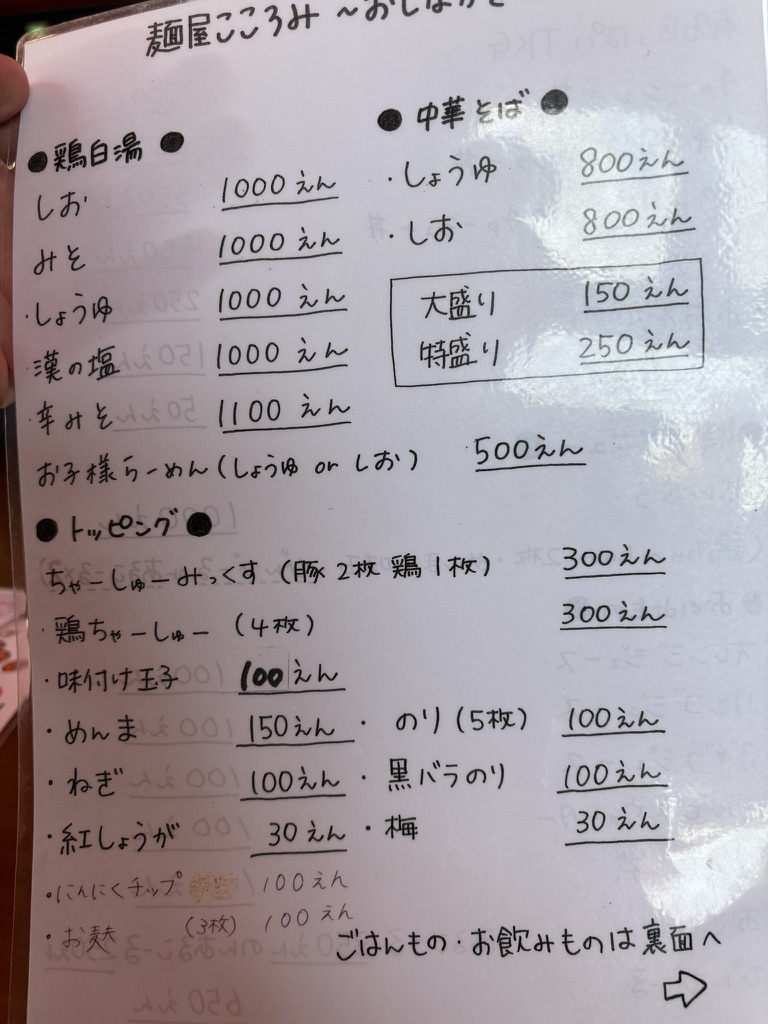 麺屋こころみ ~おしながき
●鶏白湯●
しお 1000えん
みそ 1000えん
・しょうゆ 1000えん
・漢の塩 1000えん
・辛みそ 1100えん
●中華そば●
・しょうゆ 800えん
・しお 800えん
大盛り 150えん
特盛り 250えん
お子様らーめん(しょうゆ or しお) 500えん
●トッピング●
ちゃーしゅーみっくす (豚2枚 鶏1枚) 300えん
・鶏ちゃーしゅー (4枚) 300えん
・味付け玉子 100えん
・めんま 150えん ・のり(5枚) 100えん
・ねぎ 100えん ・黒バラのり 100えん
・紅しょうが 30えん ・梅 30えん
・にんにくチップ 100えん
・お麸 (3枚) 100えん
ごはんもの・お飲みものは裏面へ
⇨